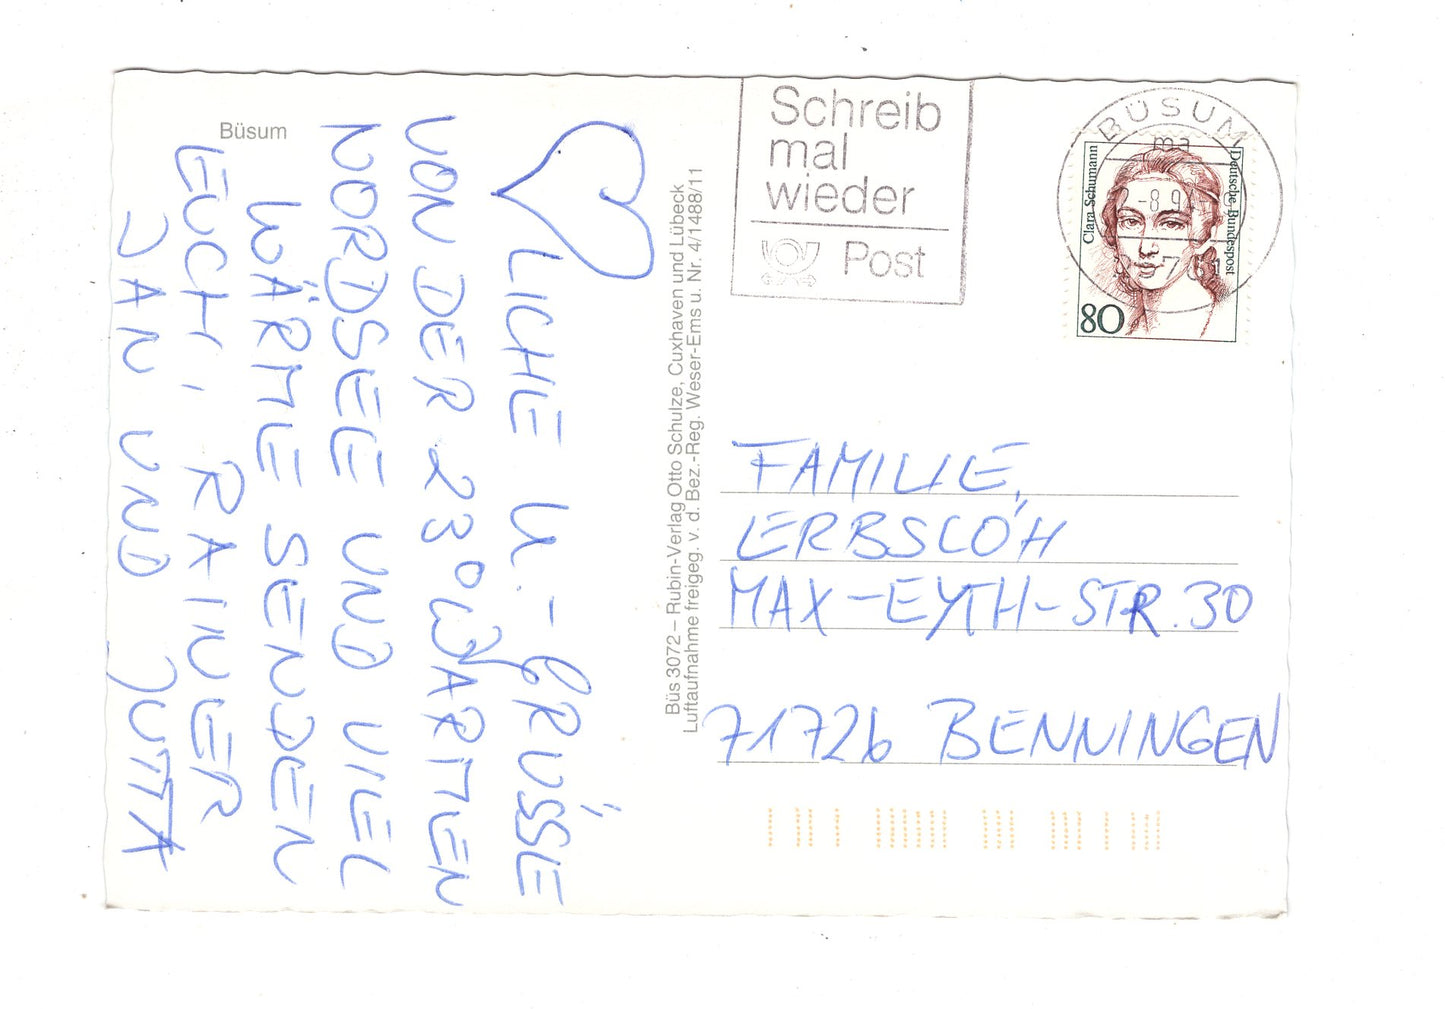 Büsum
♡LICHE U.-GRÜSSE
VON DER 23° WARMEN
NORDSEE UND VIEL
WÄRME SENDEN
EUCH, RAINER
JAN UND JUTTA
Büs 3072 – Rubin-Verlag Otto Schulze, Cuxhaven und Lübeck
Luftaufnahme freigeg. v. d. Bez.-Reg. Weser-Ems u. Nr. 4/1488/11
Schreib
mal
wieder
Post
BÜSUM
ma
-8.9
Clara Schumann
Deutsche Bundespost
80
FAMILIE
ERBSLÖH
MAX-EYTH-STR. 30
71726 BENNINGEN